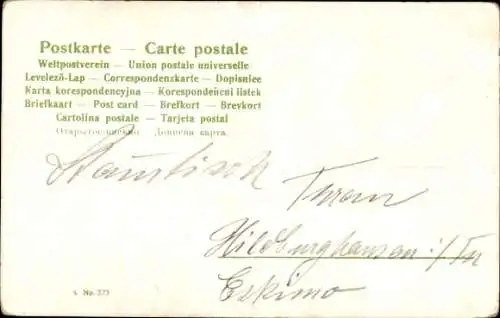 Postkarte — Carte postale
Weltpostverein — Union postale universelle
Levelező-Lap — Correspondenzkarte — Dopisnice
Karta korespondencyjna — Korespondenčni listek
Briefkaart — Post card — Brefkort — Brevkort
Cartolina postale — Tarjeta postal
Stamtisch
Hildburghausen i/Th
Eskimo
No. 373